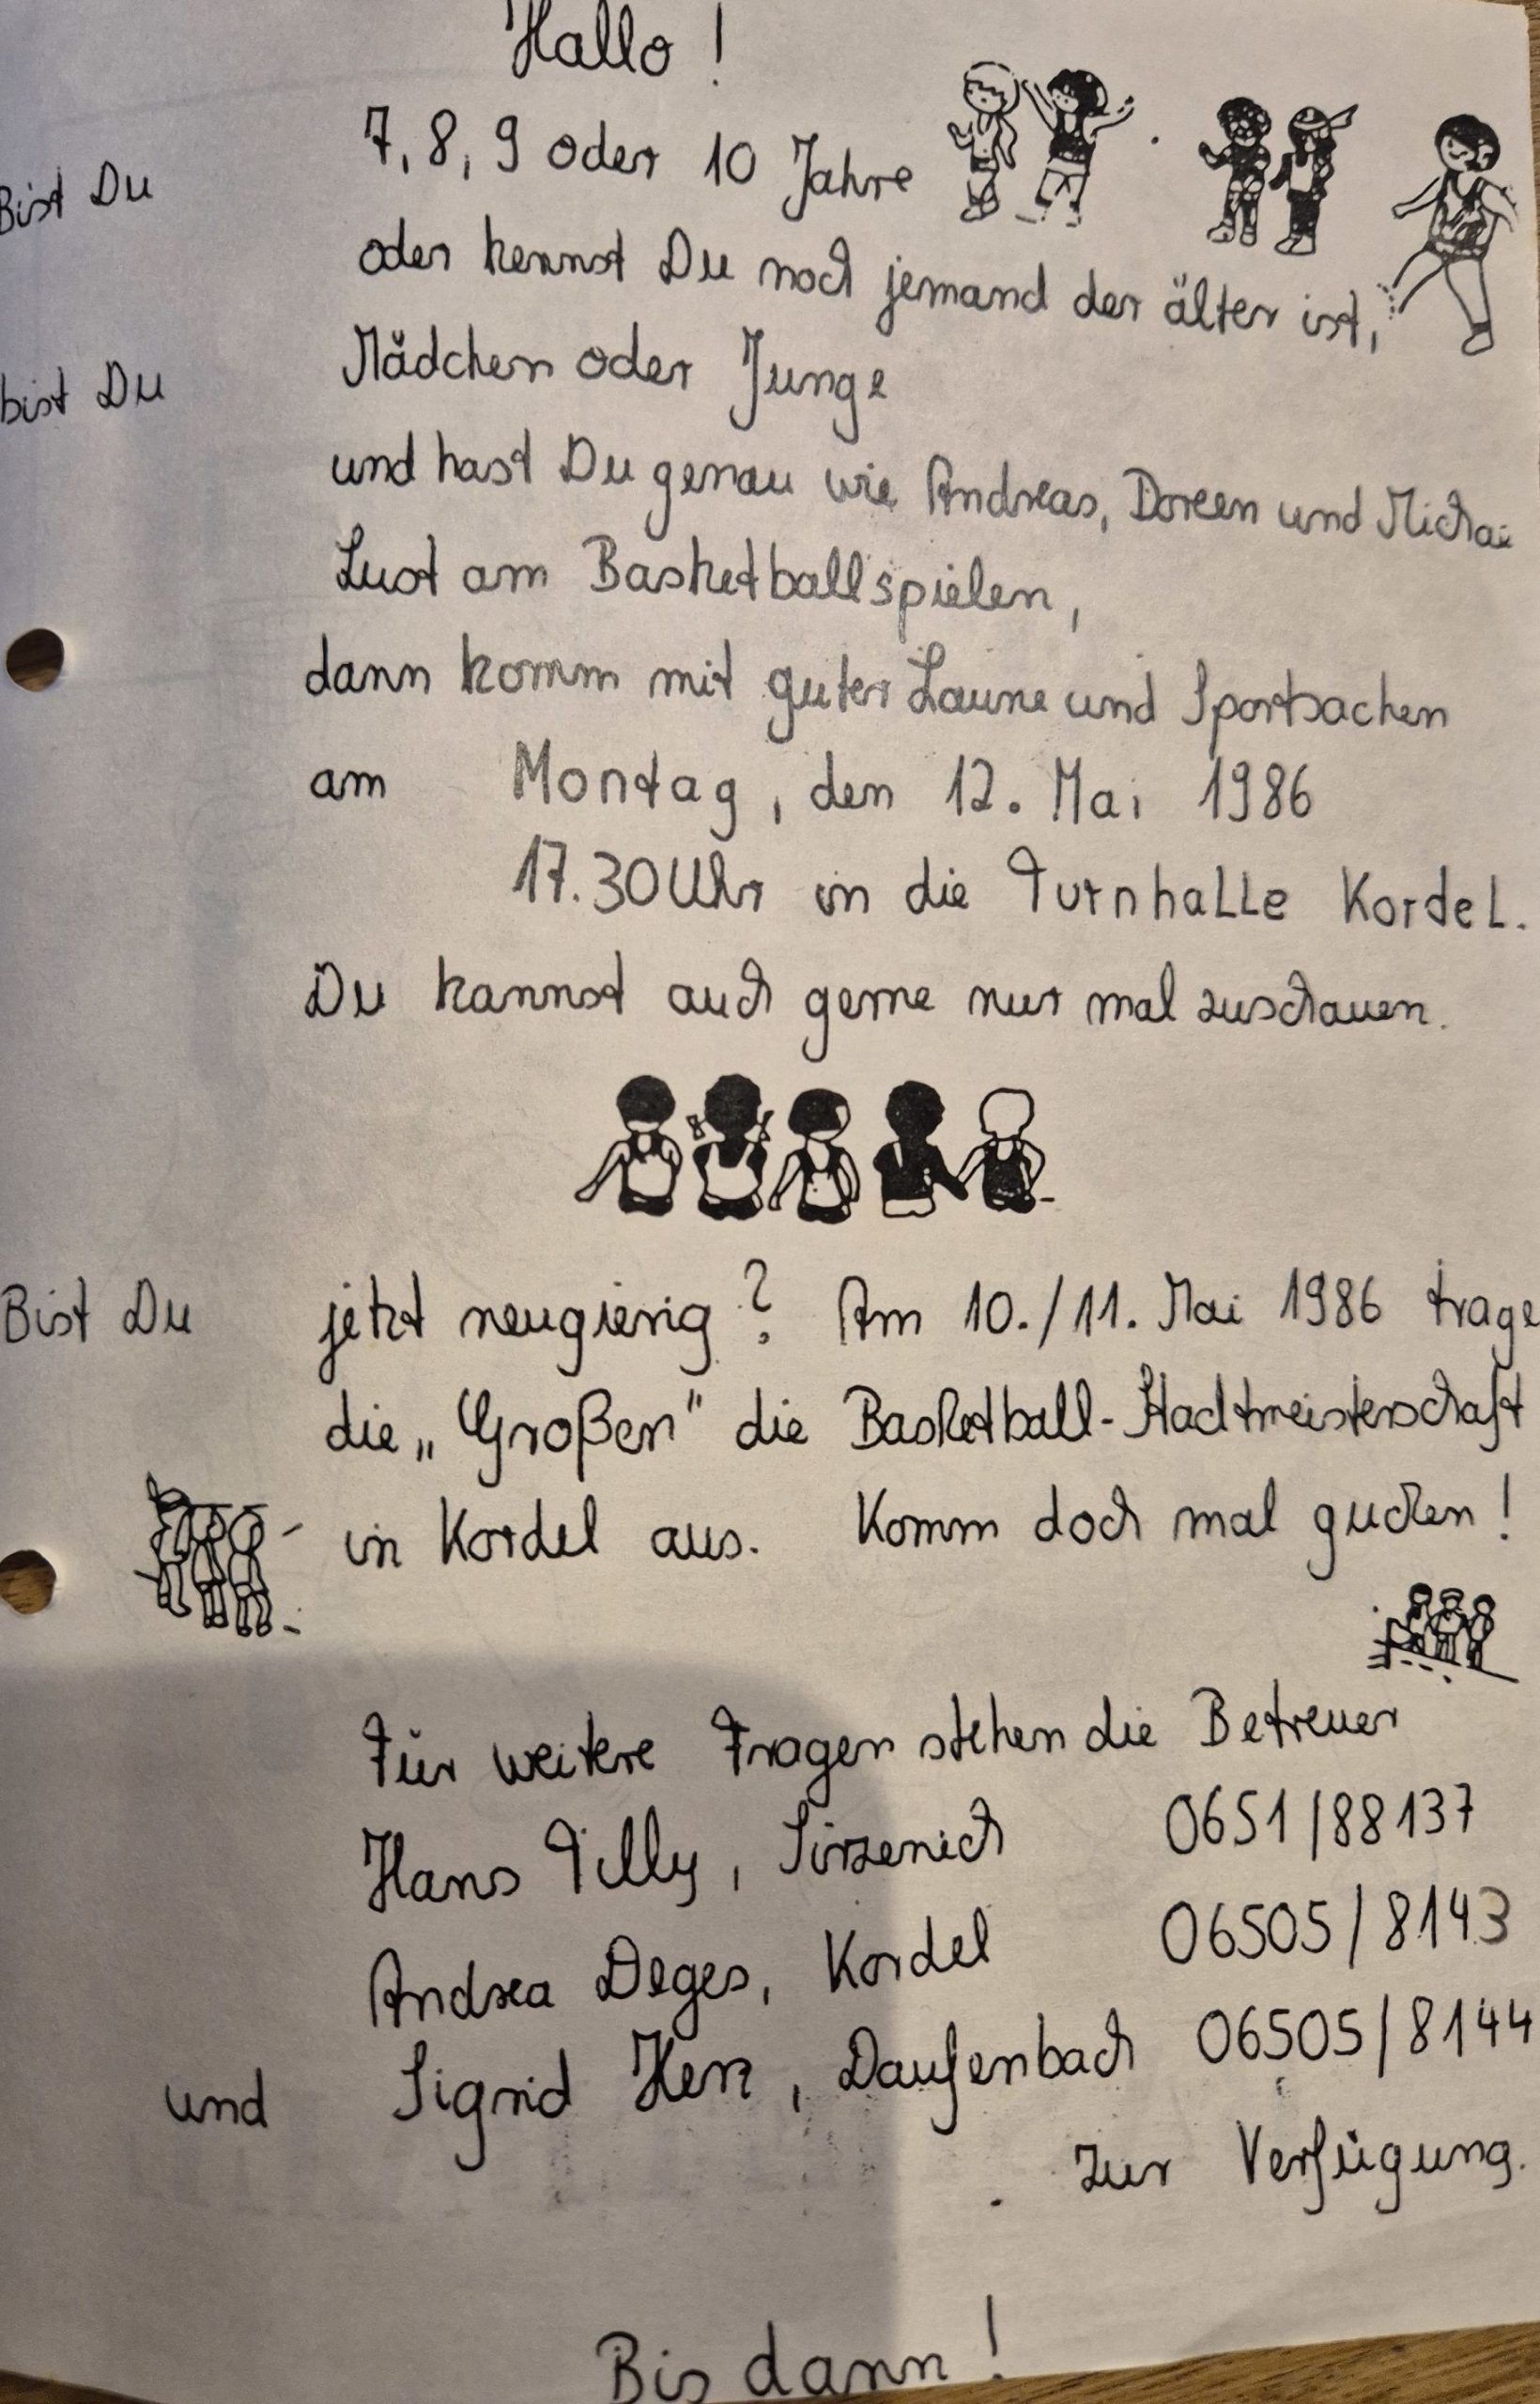 Hallo !
Bist Du 7, 8, 9 oder 10 Jahre
oder kennst Du noch jemand der älter ist,
bist Du Mädchen oder Junge
und hast Du genau wie Andreas, Doreen und
Lust am Basketballspielen,
dann komm mit guter Laune und Sportsachen
am Montag, den 12. Mai 1986
17.30 Uhr in die Turnhalle Kordel.
Du kannst auch gerne nur mal zuschauen.
Bist Du jetzt neugierig? Am 10./11. Mai 1986 trage
die „Großen" die Basketball-Stadtmeisterschaft
in Kordel aus. Komm doch mal gucken!
Für weitere Fragen stehen die Betreuer
Hans Tilly, Sirzenich 0651/88137
Andrea Deges, Kordel 06505/8143
und Sigrid Herz, Daufenbach 06505/8144
zur Verfügung.
Bis dann!